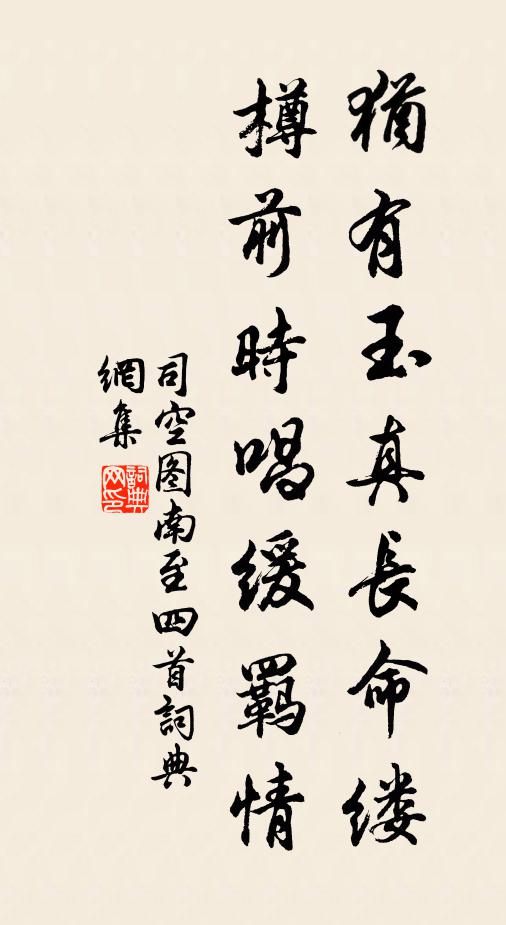 猶有玉真長命缕
樽前時唱緩羈情
司空图南至四首詞典
網集
詞典
网印